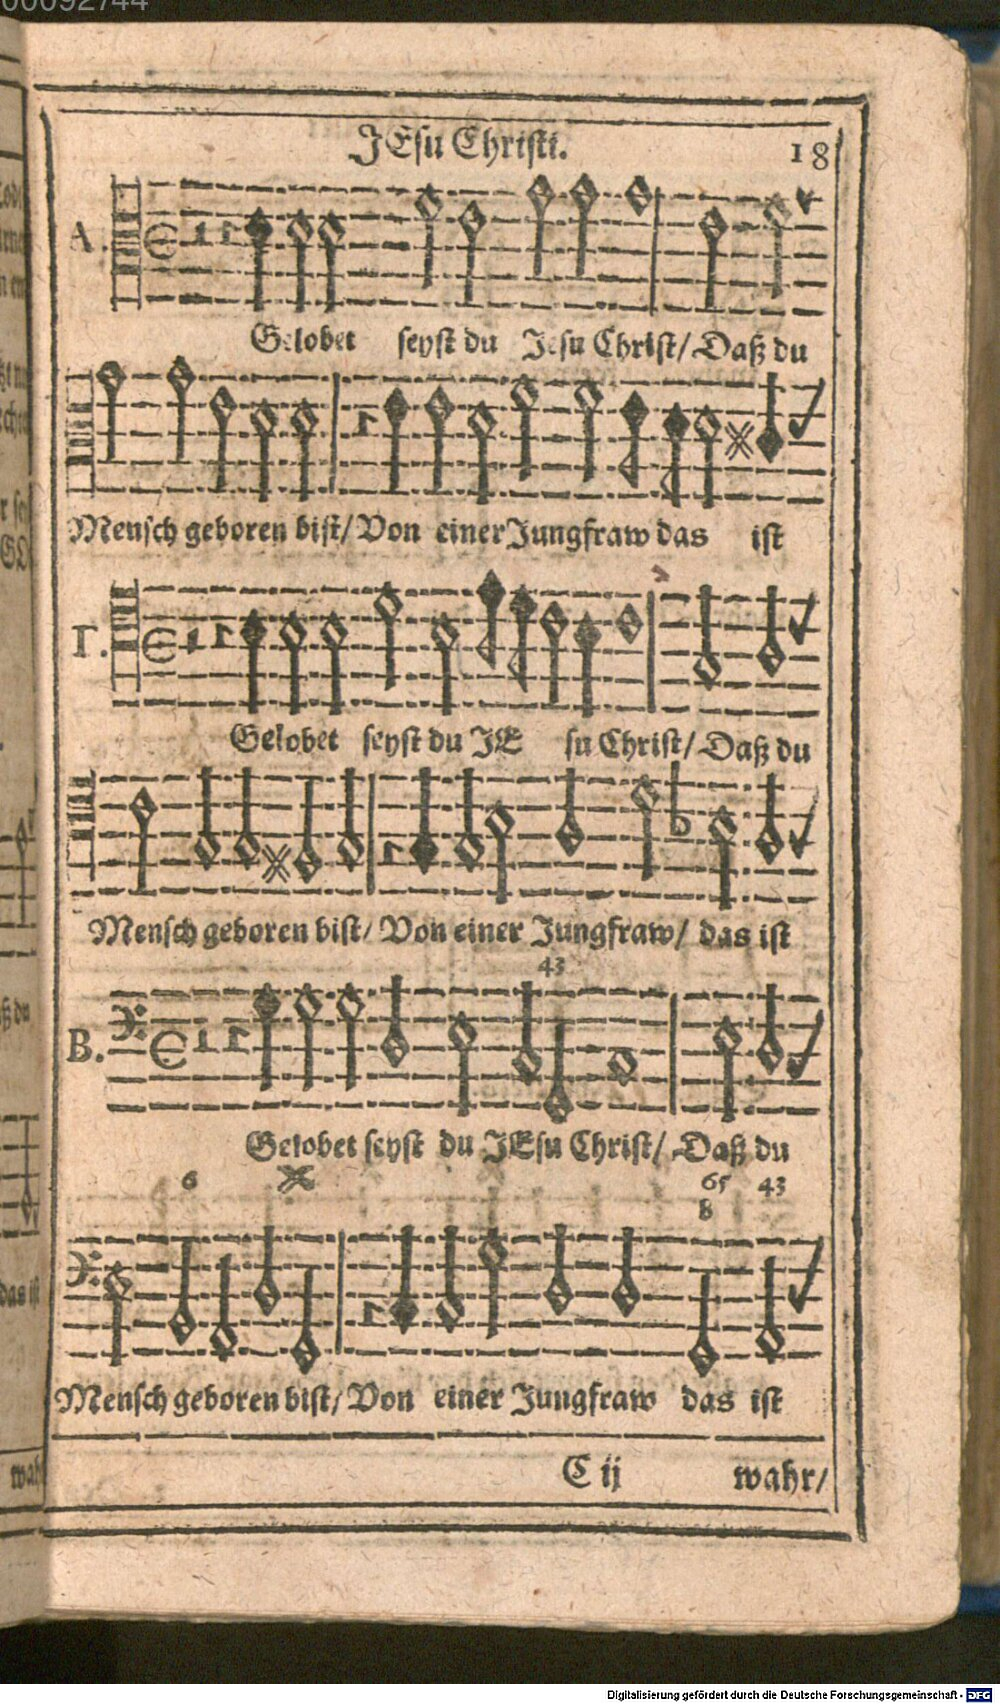 00092744
JEsu Christi.
18
A.
Gelobet seyst du Jesu Christ/ Daß du
Mensch geboren bist/ Von einer Jungfraw das ist
T.
Gelobet seyst du JE su Christ/ Daß du
Mensch geboren bist/ Von einer Jungfraw/ das ist
43
B.
Gelobet seyst du JEsu Christ/ Daß du
6 65 43
8
Mensch geboren bist/ Von einer Jungfraw das ist
C ij wahr/
Digitalisierung gefördert durch die Deutsche Forschungsgemeinschaft - DFG